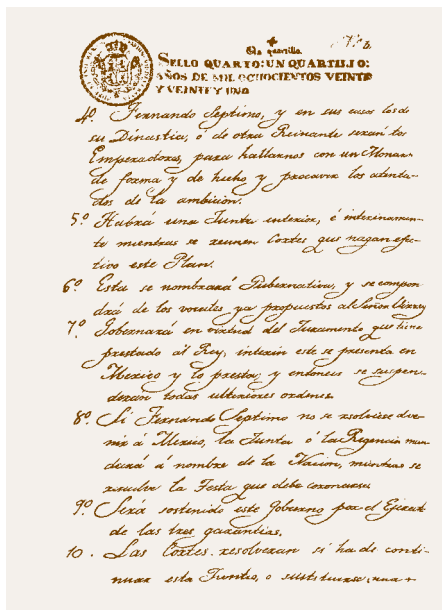 Un quartillo.
SELLO QUARTO: UN QUARTILLO:
AÑOS DE MIL OCHOCIENTOS VEINTE
Y VEINTE Y UNO
4º Fernando Septimo, y en sus casos los de
su Dinastia, ó de otra Reinante serán los
Emperadores, para hallarnos con un Monar-
de forma y de hecho y precavér los atenta-
dos de la ambicion.
5º Habrá una Junta interior, é interinamen-
te mientras se reunen Cortes que hagan efec-
tivo este Plan.
6º Esta se nombrará Gubernativa, y se compon
drá de los vocales ya propuestos al Señor Virrey
7º Gobernará en virtud del Juramento que tiene
prestado al Rey, interin este se presenta en
Mexico y lo presta; y entonces se suspen-
deran todas ulteriores ordenes.
8º Si Fernando Septimo no se resolviese á ve-
nir á Mexico, la Junta ó la Regencia man
dará á nombre de la Nacion, mientras se
resuelve la Testa que debe coronarse.
9º Será sostenido este Gobierno por el Ejercito
de las tres garantias.
10. Las Cortes resolveran si ha de conti-
nuar esta Junta, o sustituirse una